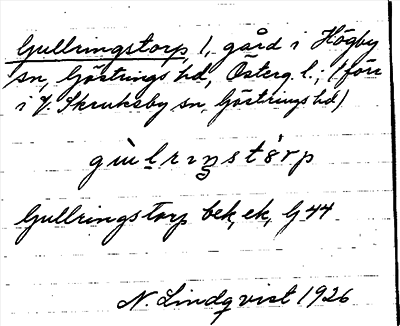 Gullringstorp 1, gård i Högby
sn, Göstrings hd, Österg. l.; (förr
i V. Skruksby sn, Göstrings hd)
gùlrıŋstòrp
Gullringstorp bek, ek, G 44
N. Lindqvist 1926